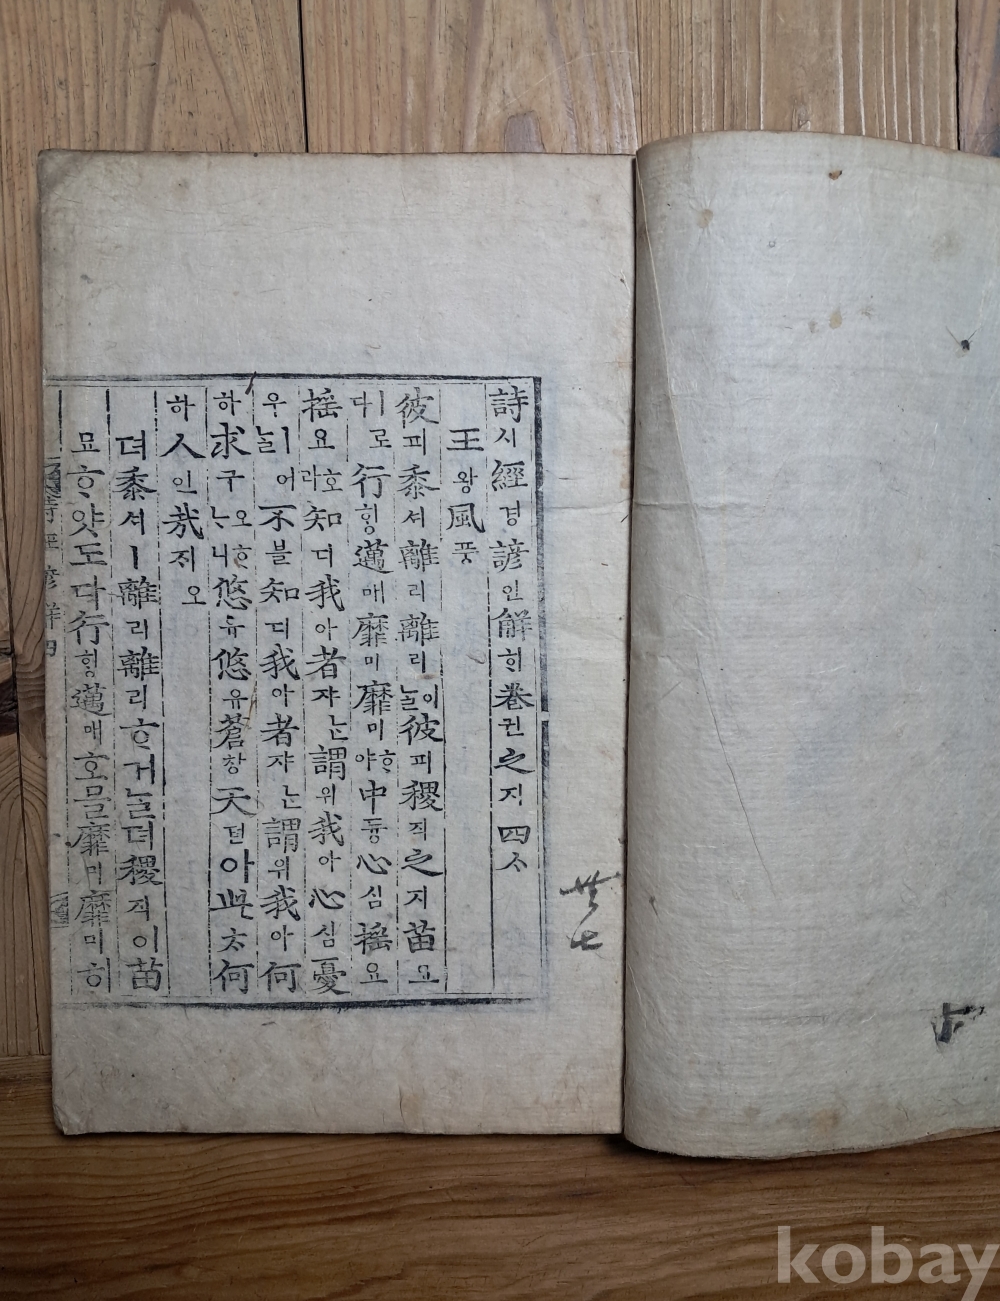 詩시經경諺언解ᄒᆡ卷권之지四ᄉᆞ
王왕風풍
彼피黍셔離리離리이ᄂᆞᆯ彼피稷직之지苗묘
ㅣ로다行ᄒᆡᆼ邁매靡미靡미ᄒᆞ야中듕心심搖요
搖요호라知디我아者쟈ᄂᆞᆫ謂위我아心심憂
우ㅣ어ᄂᆞᆯ不블知디我아者쟈ᄂᆞᆫ謂위我아何
하求구오ᄒᆞᄂᆞ니悠유悠유蒼창天텬아此ᄎᆞᄂᆞᆫ何
하人인哉ᄌᆡ오
뎌黍셔ㅣ離리離리ᄒᆞ거ᄂᆞᆯ뎌稷직이苗
묘ᄒᆞ얏도다行ᄒᆡᆼ邁매호ᄆᆞᆯ靡미靡미히
詩經諺解 四
卅七
kobay